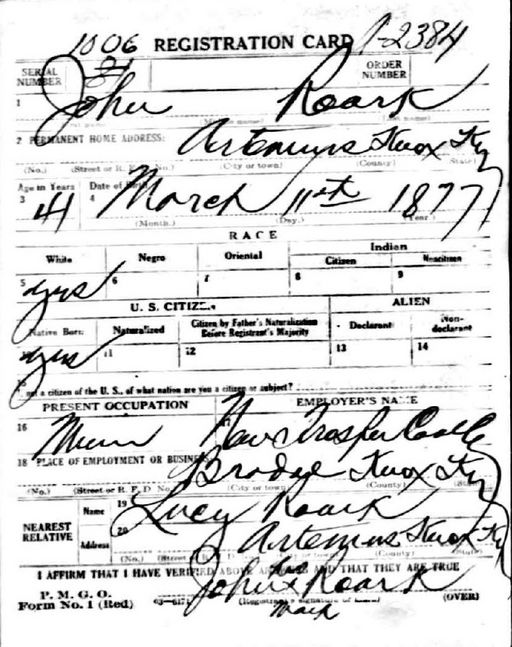 1006 REGISTRATION CARD 1-2384
SERIAL NUMBER 31 ORDER NUMBER
1 John Roark
2 PERMANENT HOME ADDRESS: Artemus Knox Ky
(No.) (Street or R. F. D. No.) (City or town) (County) (State)
Age in Years Date of Birth
3 41 4 March 11st 1877
(Month.) (Day.) (Year.)
RACE
White Negro Oriental Indian
Citizen Noncitizen
5 yes 6 7 8 9
U. S. CITIZEN ALIEN
Native Born Naturalized Citizen by Father's Naturalization Before Registrant's Majority Declarant Non-declarant
yes 11 12 13 14
not a citizen of the U. S., of what nation are you a citizen or subject?
PRESENT OCCUPATION EMPLOYER'S NAME
16 Miner New Trosper Coal Co
18 PLACE OF EMPLOYMENT OR BUSINESS Knox Ky
(No.) (Street or R. F. D. No.) (City or town) (County) (State)
NEAREST RELATIVE Name 19 Lucy Roark
Address 20 Artemus Knox Ky
(No.) (Street or R. F. D. No.) (City or town) (County) (State)
I AFFIRM THAT I HAVE VERIFIED ABOVE ANSWERS AND THAT THEY ARE TRUE
P. M. G. O.
Form No. 1 (Red) John x Roark
(Registrant's signature or mark) (OVER)
mark